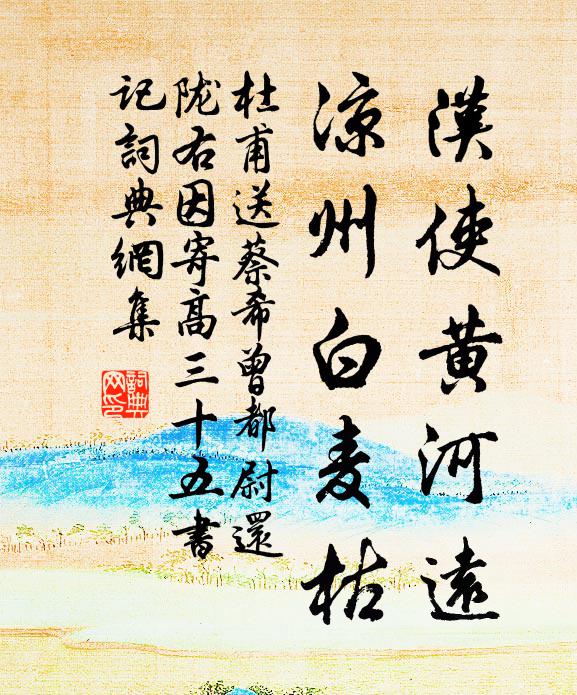 漢使黄河遠
凉州白麦枯
杜甫送蔡希曾都尉還
陇右因寄高三十五書
记詞典網集
詞典
网印